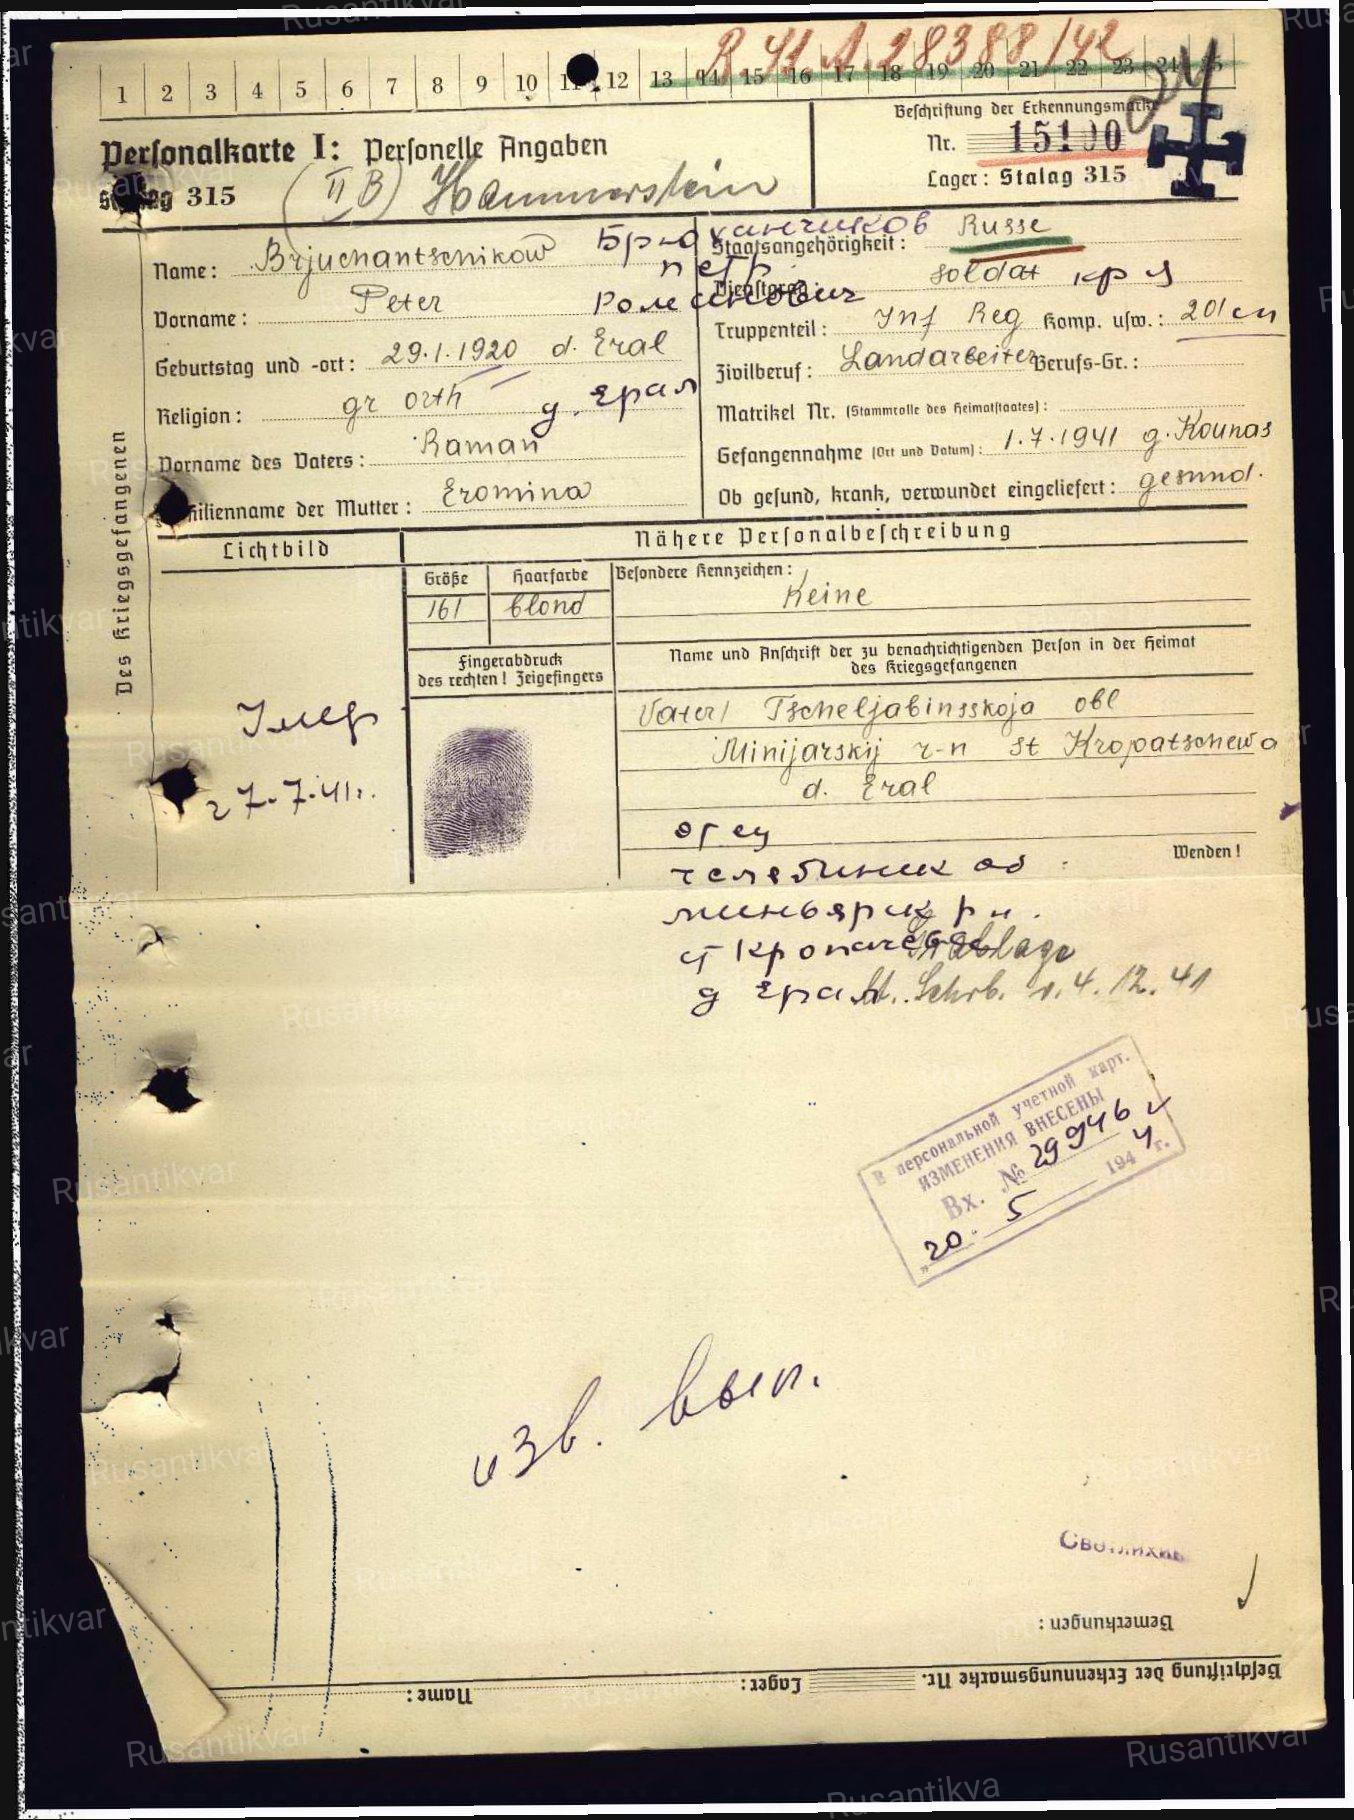 R. 41. A. 28388/42
1 2 3 4 5 6 7 8 9 10 11 12 13 14 15 16 17 18 19 20 21 22 23 24 25
24
Personalkarte I: Personelle Angaben
Beschriftung der Erkennungsmarke
Nr. 15100
Lager: Stalag 315
Stalag 315
(II B) Hammerstein
Des Kriegsgefangenen
Name: Brjuchantschikow
Брюханчиков
Vorname: Peter
петр
Романович
Geburtstag und -ort: 29.1.1920 d. Eral
Religion: gr orth
д. Ерал
Vorname des Vaters: Raman
Familienname der Mutter: Eromina
Staatsangehörigkeit: Russe
Dienstgrad: soldat кр я
Truppenteil: Inf Reg Komp. usw.: 201 сп
Zivilberuf: Landarbeiter Berufs-Gr.:
Matrikel Nr. (Stammrolle des Heimatstaates):
Gefangennahme (Ort und Datum): 1.7.1941 g. Kounas
Ob gesund, krank, verwundet eingeliefert: gesund.
Lichtbild
Nähere Personalbeschreibung
Größe Haarfarbe Besondere Kennzeichen:
161 blond Keine
Fingerabdruck
des rechten! Zeigefingers
Name und Anschrift der zu benachrichtigenden Person in der Heimat
des Kriegsgefangenen
Умер
27.7.41г.
Vater/ Tscheljabinsskoja obl
Minijarskij r-n st Kropatschewa
d. Eral
отец
Wenden!
челябинск об
миньярск р н.
ст Кропачева
д Ерал
lt. Schrb. v. 4.12.41
В персональной учетной карт.
ИЗМЕНЕНИЯ ВНЕСЕНЫ
Вх. № 29946
"20. 5 1944 г.
изв. вып.
Bemerkungen:
Beschriftung der Erkennungsmarke Nr. Lager: Name:
Rusantikvar